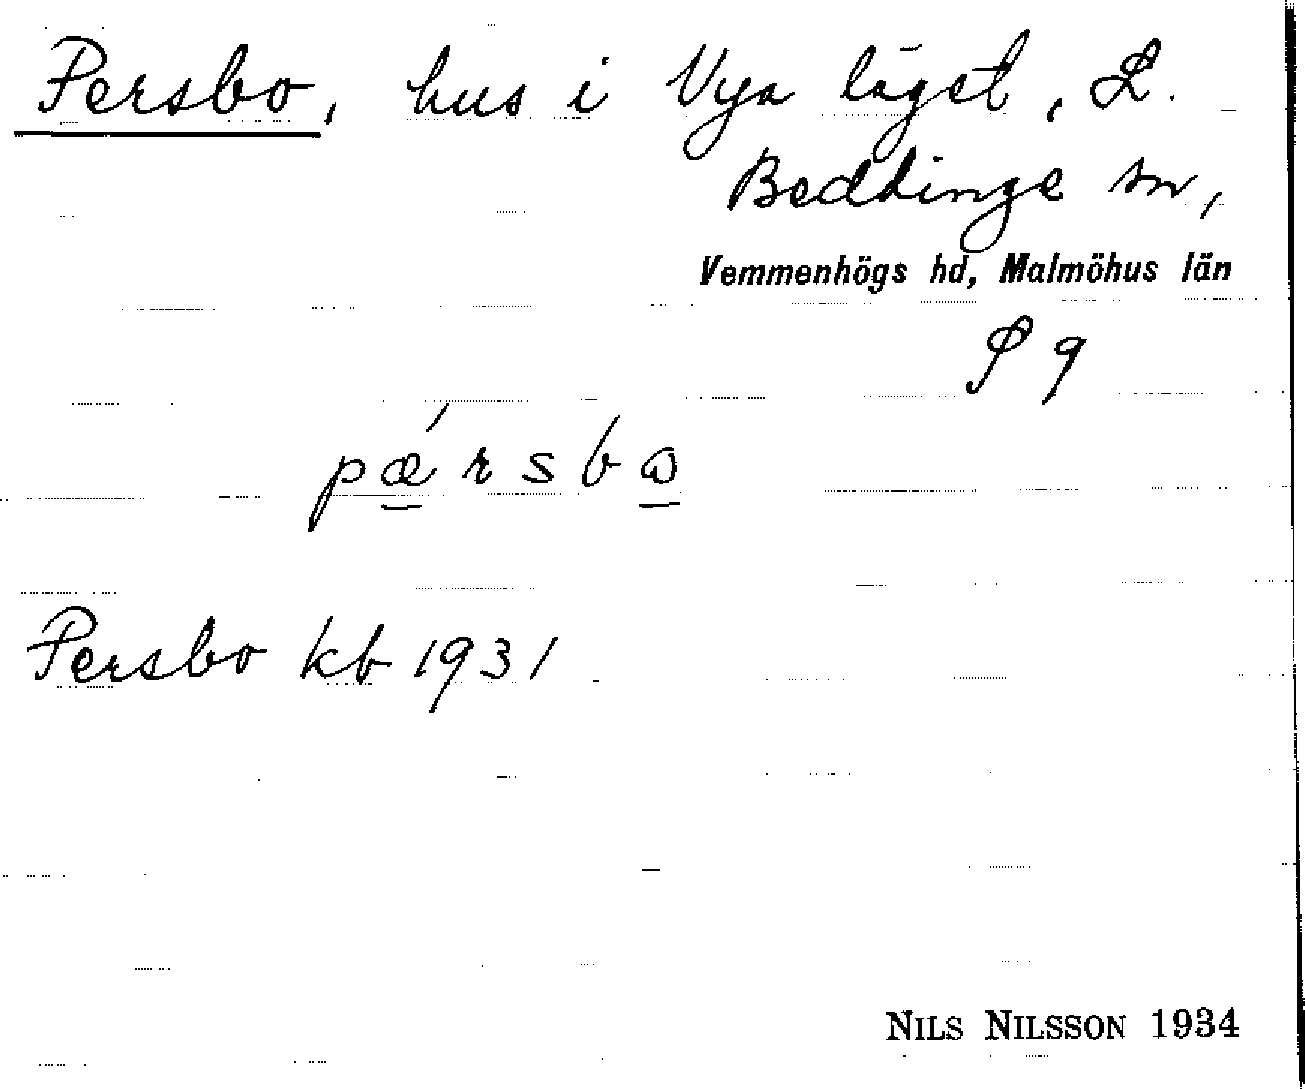 Persbo, hus i Nya läget, L.
Beddinge sn,
Vemmenhögs hd, Malmöhus län
S 9
pæ´rsbɷ
Persbo kb 1931
NILS NILSSON 1934